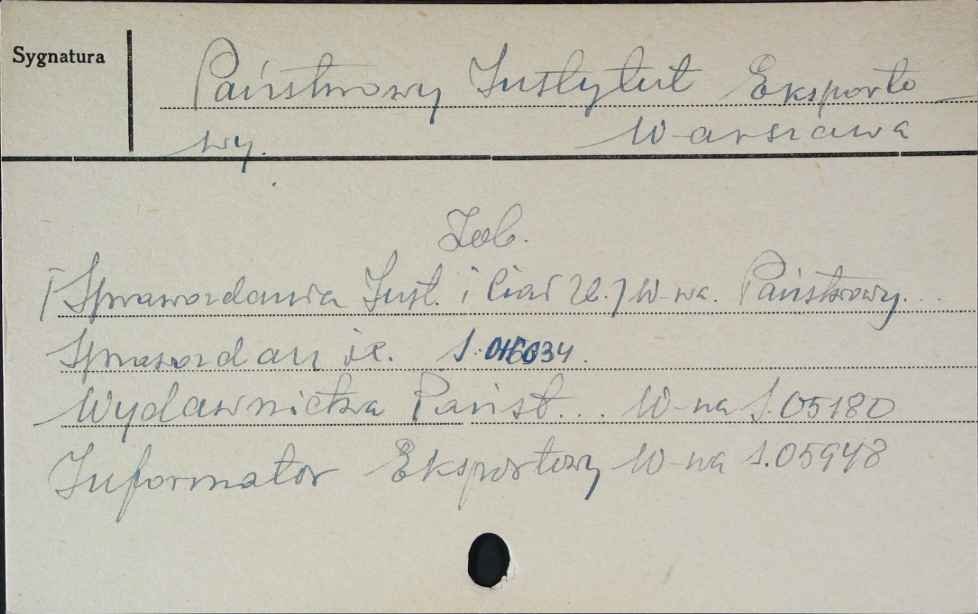 Sygnatura
Państwowy Instytut Eksporto
wy. Warszawa
Zob.
[Sprawozdania Inst. i Ciał Zb.] W-wa. Państwowy...
Sprawozdanie. S.016034.
Wydawnictwa Państ... W-wa S.05180
Informator Eksportowy W-wa S.05948